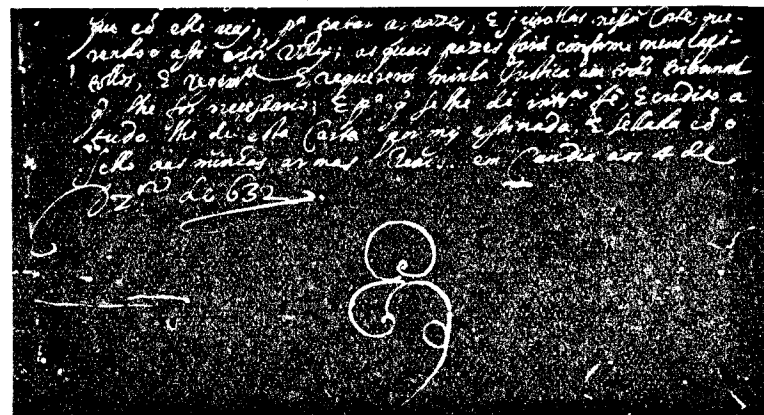 que cõ elle veaj, pª tratar as pazes, E jurallas nessa Corte, que-
rendo o assi esse Rey; as quais pazes fará conforme meus Capi-
tollos, E regimᵗᵒ E requererá minha Justica em todo tribunal
q̃ lhe for necessario; E pª q̃ se lhe dé intrª fé, E credito a
tudo lhe dé esta Carta por my assinada, E sellada cõ o
sello das minhas armas em Candia aos 4 de
de 632.